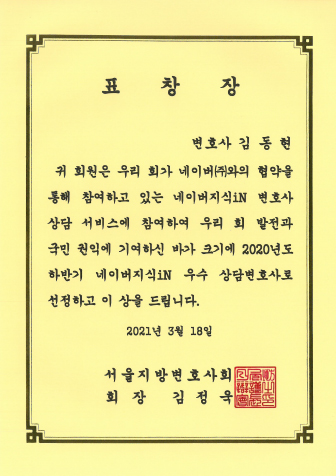 표 창 장
변호사 김 동 현
귀 회원은 우리 회가 네이버(주)와의 협약을
통해 참여하고 있는 네이버지식iN 변호사
상담 서비스에 참여하여 우리 회 발전과
국민 권익에 기여하신 바가 크기에 2020년도
하반기 네이버지식iN 우수 상담변호사로
선정하고 이 상을 드립니다.
2021년 3월 18일
서울지방변호사회
회 장 김 정 욱